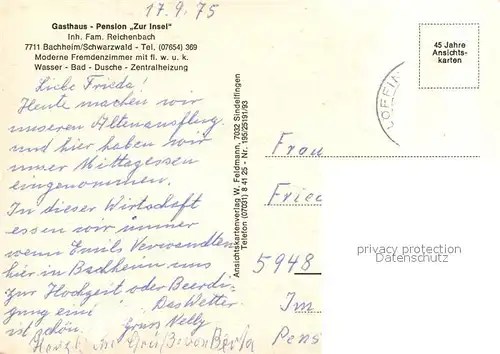 17.9.75
Gasthaus - Pension „Zur Insel"
Inh. Fam. Reichenbach
7711 Bachheim/Schwarzwald - Tel. (07654) 369
Moderne Fremdenzimmer mit fl. w. u. k.
Wasser - Bad - Dusche - Zentralheizung
Liebe Frieda!
Heute machen wir
unseren Altenausflug
und hier haben wir
unser Mittagessen
eingenommen.
In dieser Wirtschaft
essen wir immer
wenn Emils Verwandten
hier in Bachheim uns
zur Hochzeit oder Beerdi-
gung ein
Das Wetter
ist schön. Gruss Nelly
Herzliche Grüße von Berta
Ansichtskartenverlag W. Feldmann, 7032 Sindelfingen
Telefon (07031) 8 41 25 - Nr. 195/25191/93
45 Jahre
Ansichts-
karten
LÖFFIN
Frau
Fried
5948
Im
Pens
privacy protection
Datenschutz